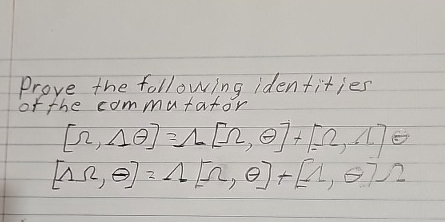 Prove the following identities
of the commutator
[Ω, ΛΘ] = Λ[Ω, Θ] + [Ω, Λ]Θ
[ΛΩ, Θ] = Λ[Ω, Θ] + [Λ, Θ]Ω